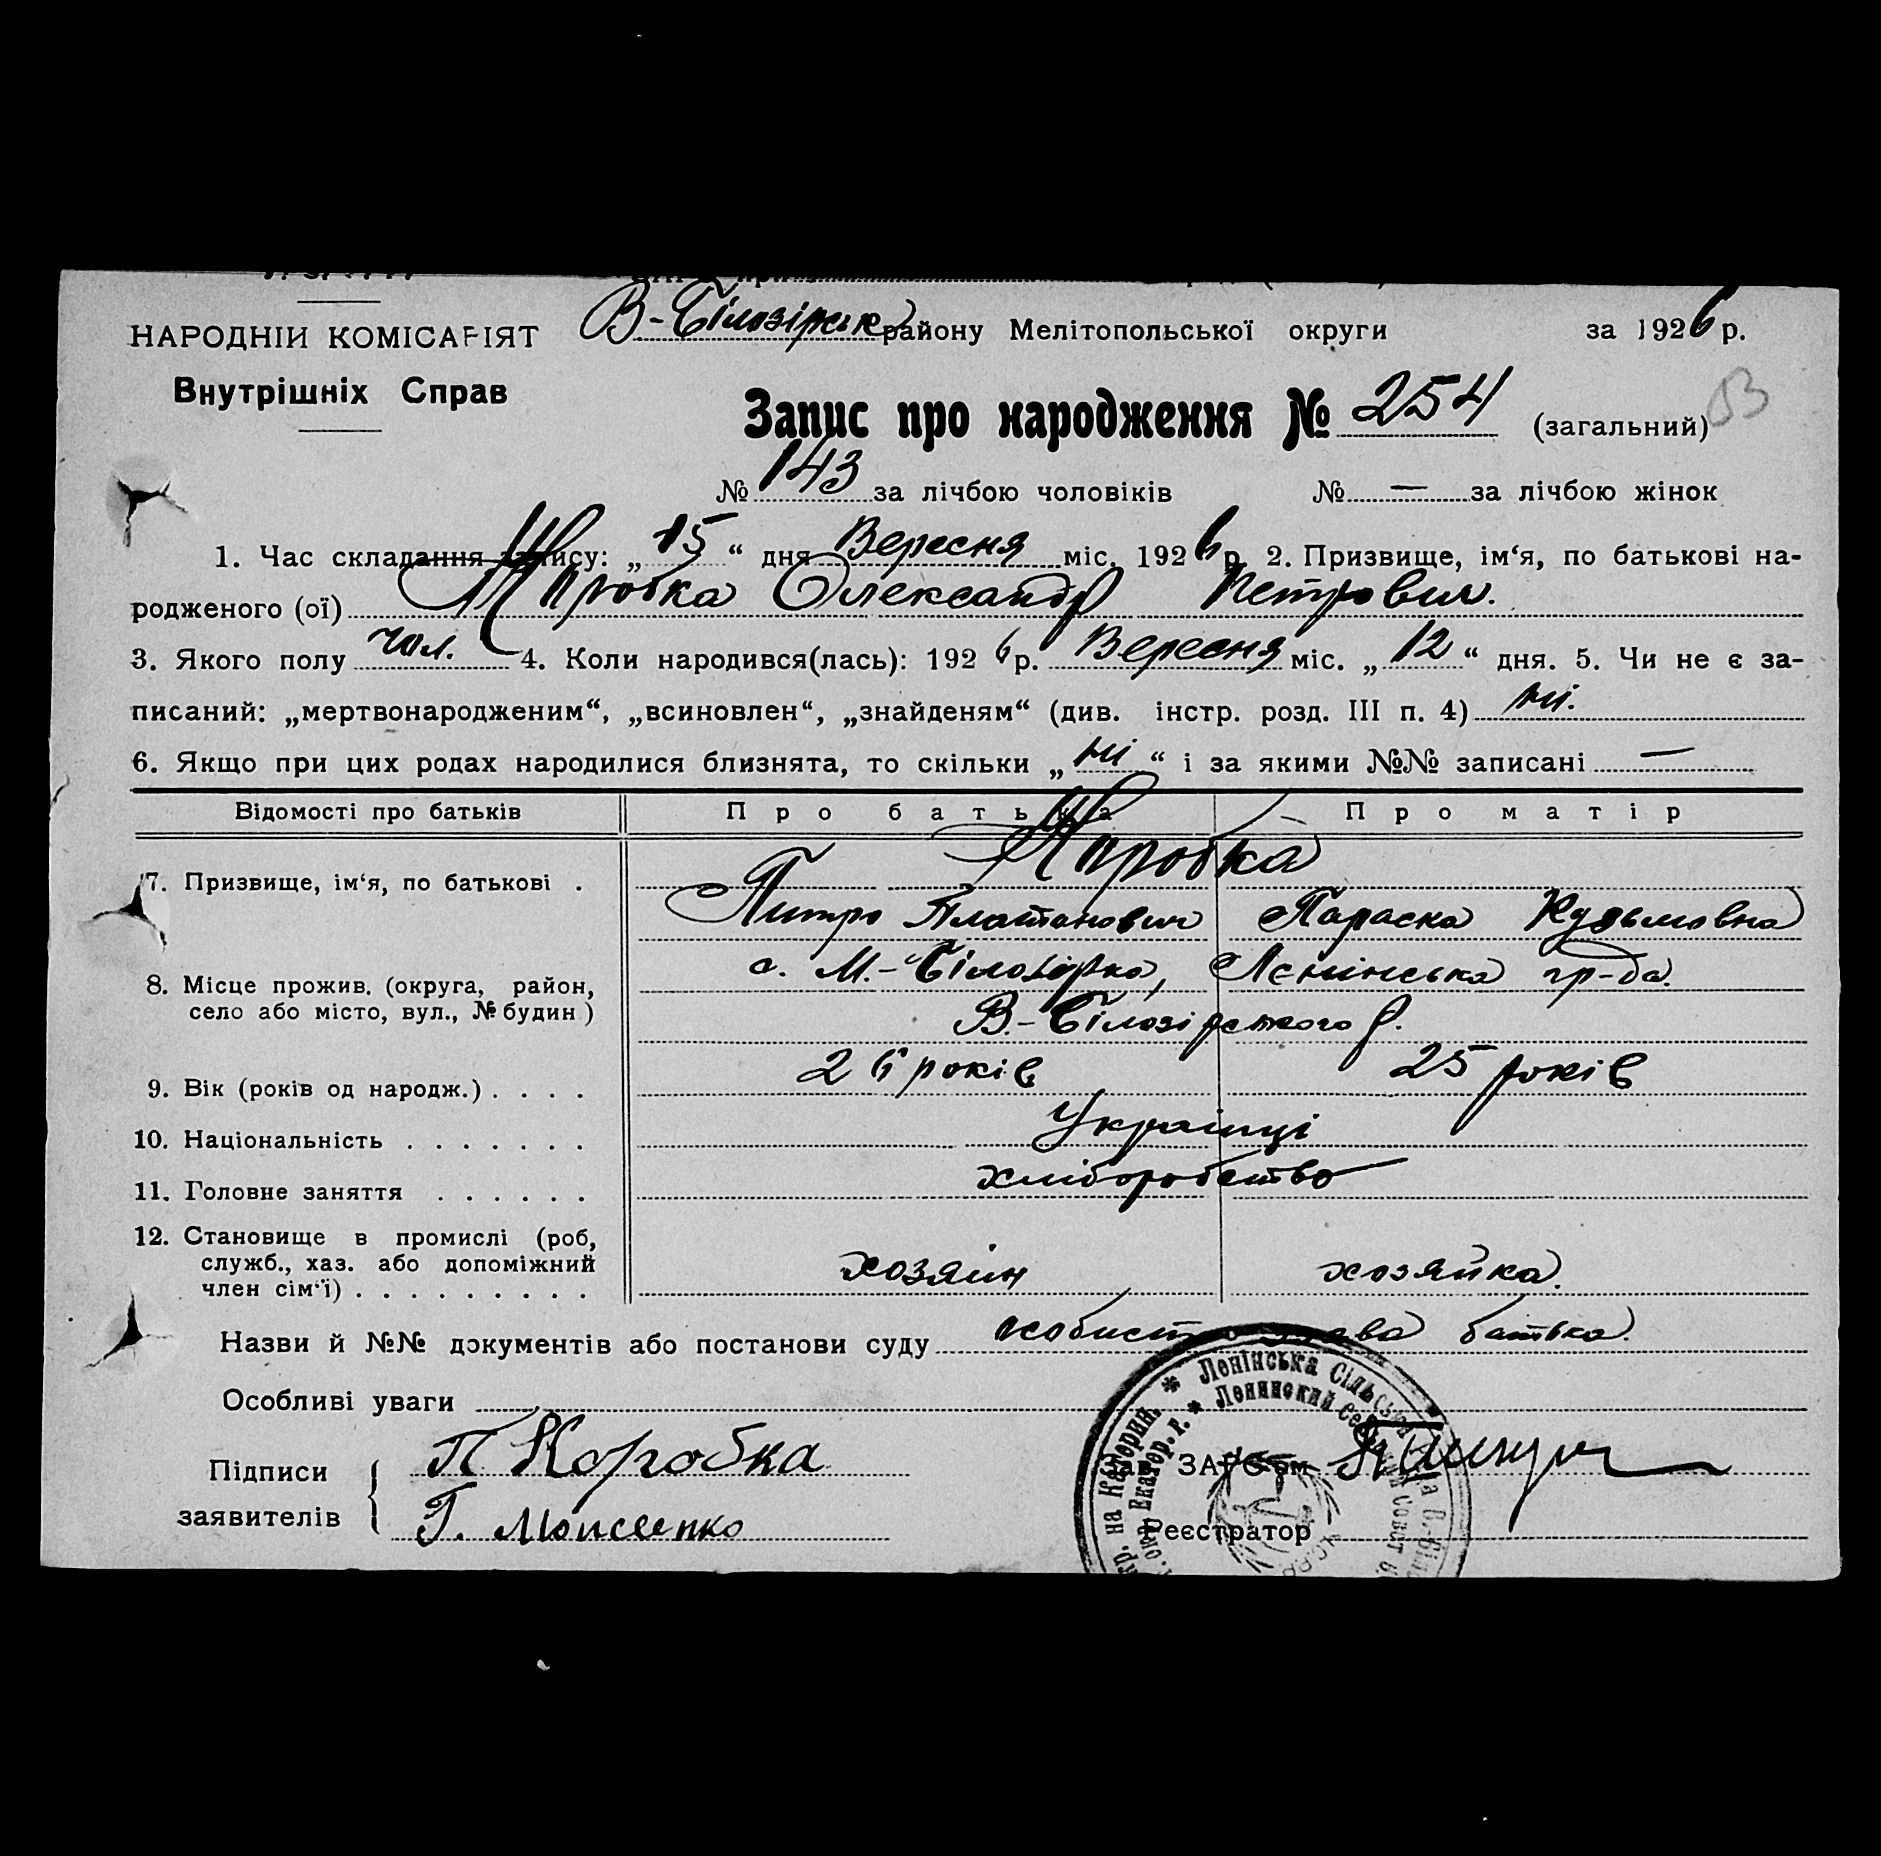 НАРОДНІЙ КОМІСАРІЯТ
Внутрішніх Справ
В-Білозірськ району Мелітопольської округи за 1926 р.
Запис про народження № 254 (загальний)
№ 143 за лічбою чоловіків № — за лічбою жінок
1. Час складання запису: „15“ дня Вересня міс. 1926 р. 2. Призвище, ім‘я, по батькові на-
родженого (ої) Коробка Олександр Петрович.
3. Якого полу чол. 4. Коли народився(лась): 1926 р. Вересня міс. „12“ дня. 5. Чи не є за-
писаний: „мертвонародженим“, „всиновлен“, „знайденям“ (див. інстр. розд. III п. 4) ні.
6. Якщо при цих родах народилися близнята, то скільки „ні“ і за якими №№ записані —
Відомості про батьків Про батька Про матір
Коробка
7. Призвище, ім‘я, по батькові .
Питро Платанович Параска Кузьмовна
8. Місце прожив. (округа, район, село або місто, вул., № будин)
с. М.-Білозірка, Ленінська гр-да.
В.-Білозірського р.
9. Вік (років од народж.) . . . . 26 років 25 років
10. Національність . . . . . . . Українці
11. Головне заняття . . . . . . хліборобство
12. Становище в промислі (роб, служб., хаз. або допоміжний член сім‘ї) . . . . . . . . . хозяин хозяйка.
Назви й №№ документів або постанови суду особист заява батька.
Особливі уваги
Підписи заявителів { П Коробка
Г. Моисеенко
ЗАГС‘ом
Реєстратор
Ленінська Сільська Рада
Ленинский Совет